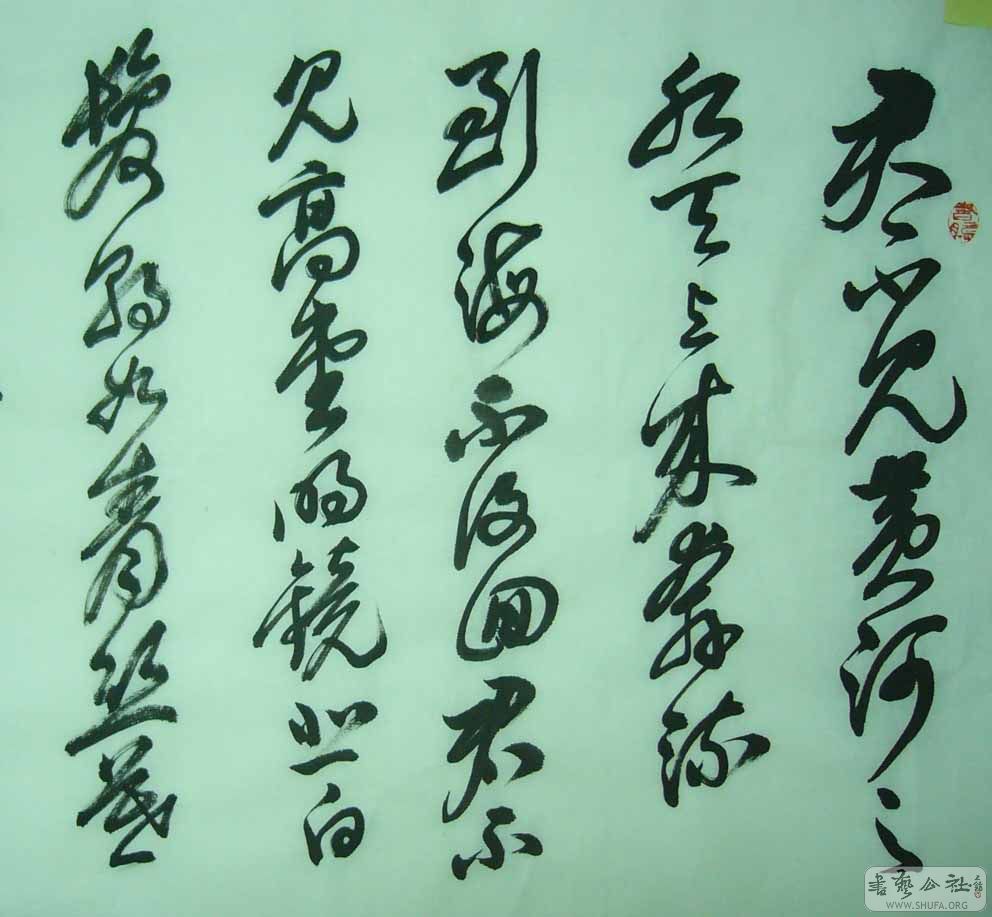 君不见黄河之
水天上来奔流
到海不復迴君不
见高堂明镜悲白
髮朝如青丝暮
書藝公社
WWW.SHUFA.ORG